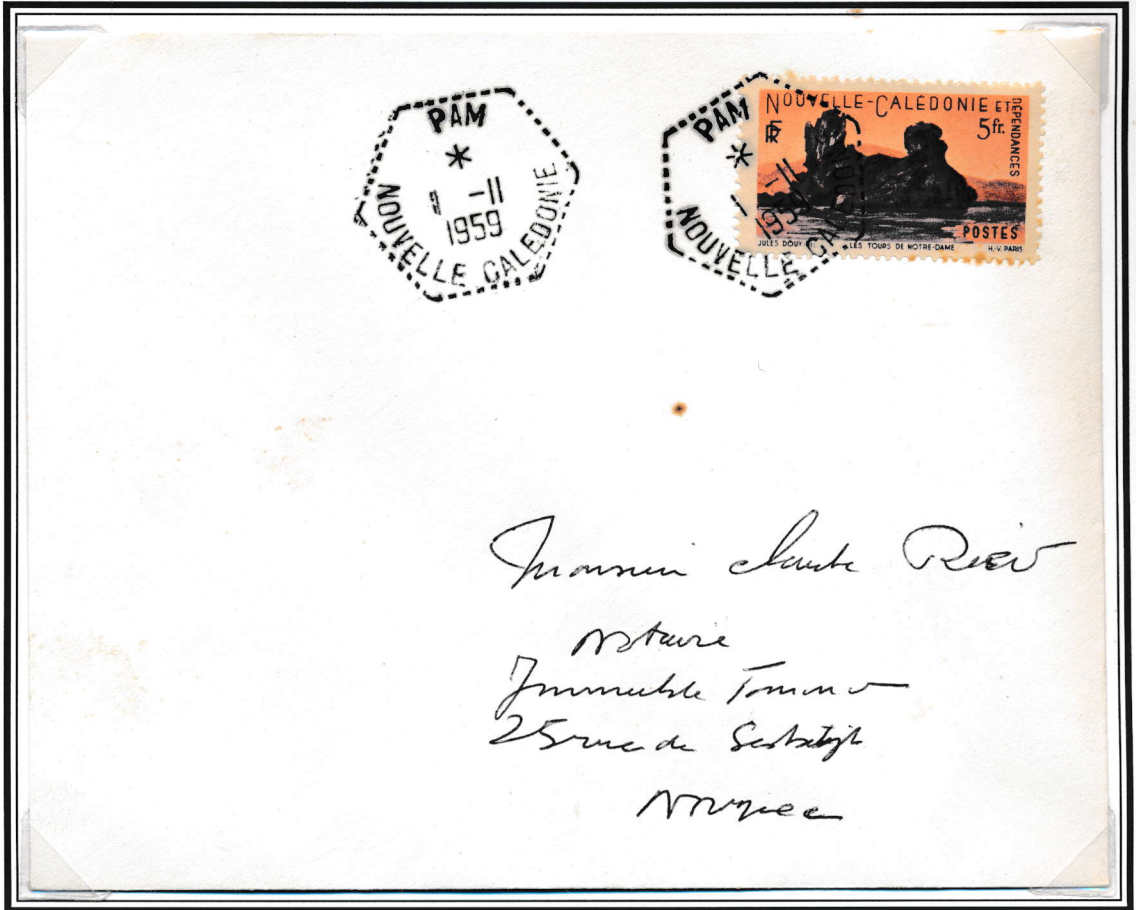 PAM
*
1 -11
1959
NOUVELLE CALEDONIE
PAM
*
1 -11
1959
NOUVELLE CALEDONIE
NOUVELLE-CALÉDONIE ET DÉPENDANCES
RF
5fr.
POSTES
LES TOURS DE NOTRE-DAME
H.-V. PARIS
JULES DOUY
Monsieur Claude
Notaire
Immeuble
25 rue de Sébastopol
Nouméa